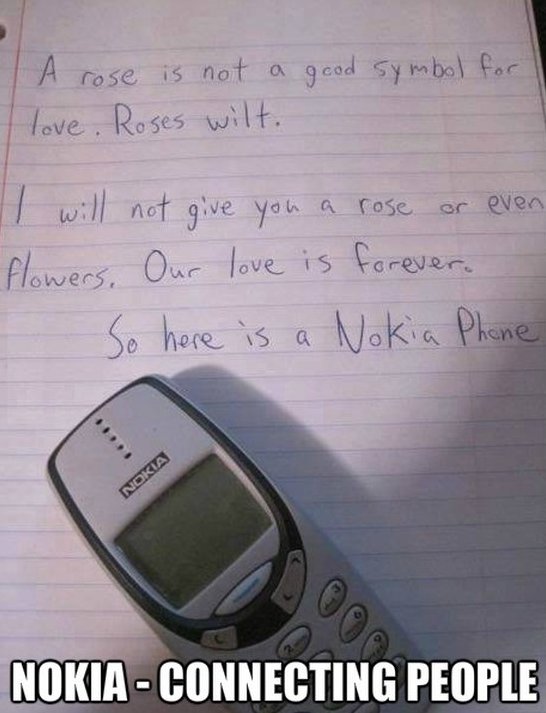 A rose is not a good symbol for
love. Roses wilt.
I will not give you a rose or even
flowers. Our love is forever.
So here is a Nokia Phone
NOKIA
NOKIA - CONNECTING PEOPLE